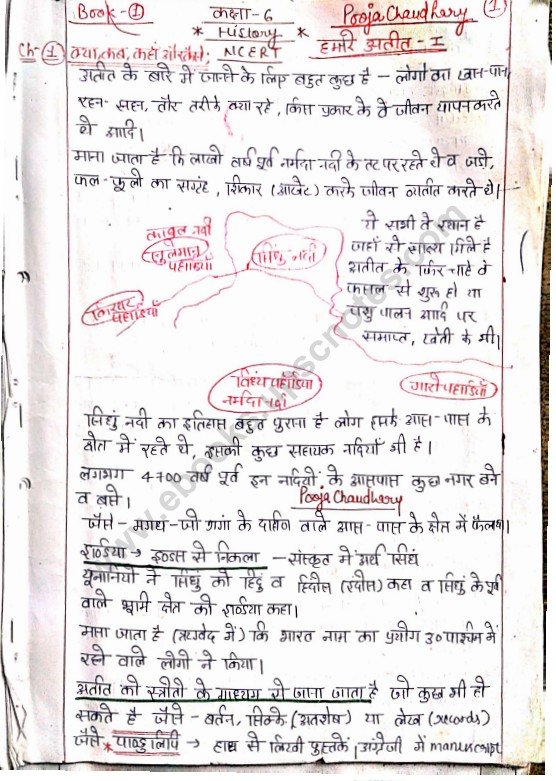 Book-① कक्षा-6 Pooja Chaudhary ①
* History *
Ch-① क्या, कब, कहाँ और कैसे, NCERT * हमारे अतीत-I *
अतीत के बारे में जानने के लिए बहुत कुछ है - लोगों का खान-पान,
रहन-सहन, तौर तरीके क्या रहे, किस प्रकार के वे जीवन यापन करते
थे आदि।
माना जाता है कि लाखों वर्ष पूर्व नर्मदा नदी के तट पर रहते थे व जड़ी,
फल-फूलो का संग्रह, शिकार (आखेट) करके जीवन व्यतीत करते थे।
काबुल नदी
सुलेमान पहाड़ियाँ
सिंधु-नदी
किरथर पहाड़ियाँ
ये सभी वे स्थान है
जहाँ से साक्ष्य मिले है
अतीत के फिर चाहे वे
फसल से शुरू हो या
पशु पालन आदि पर
समाप्त, खेती के भी।
विंध्य पहाड़ियाँ
नर्मदा नदी
गारो पहाड़ियाँ
सिंधु नदी का इतिहास बहुत पुराना है लोग इसके आस-पास के
क्षेत्र में रहते थे, इसकी कुछ सहायक नदियाँ भी है।
लगभग 4700 वर्ष पूर्व इन नदियों के आसपास कुछ नगर बने
व बसे। Pooja Chaudhary
जैसे - मगध - जो गंगा के दक्षिण वाले आस-पास के क्षेत्र में फैला था।
इण्डिया → इण्डस से निकला - संस्कृत में अर्थ सिंधु
यूनानियों ने सिंधु को हिंदु व हिंदोस (इंदोस) कहा व सिंधु के पूर्व
वाले भूमि क्षेत्र को इण्डिया कहा।
माना जाता है (ऋग्वेद में) कि भारत नाम का प्रयोग उ० पश्चिम में
रहने वाले लोगों ने किया।
अतीत को स्त्रोतों के माध्यम से जाना जाता है जो कुछ भी हो
सकते है जैसे - बर्तन, सिक्के (अवशेष) या लेख (records)
जैसे * पाण्डुलिपि → हाथ से लिखी पुस्तकें। अंग्रेजी में manuscript
www.ebooks.upscnotes.com